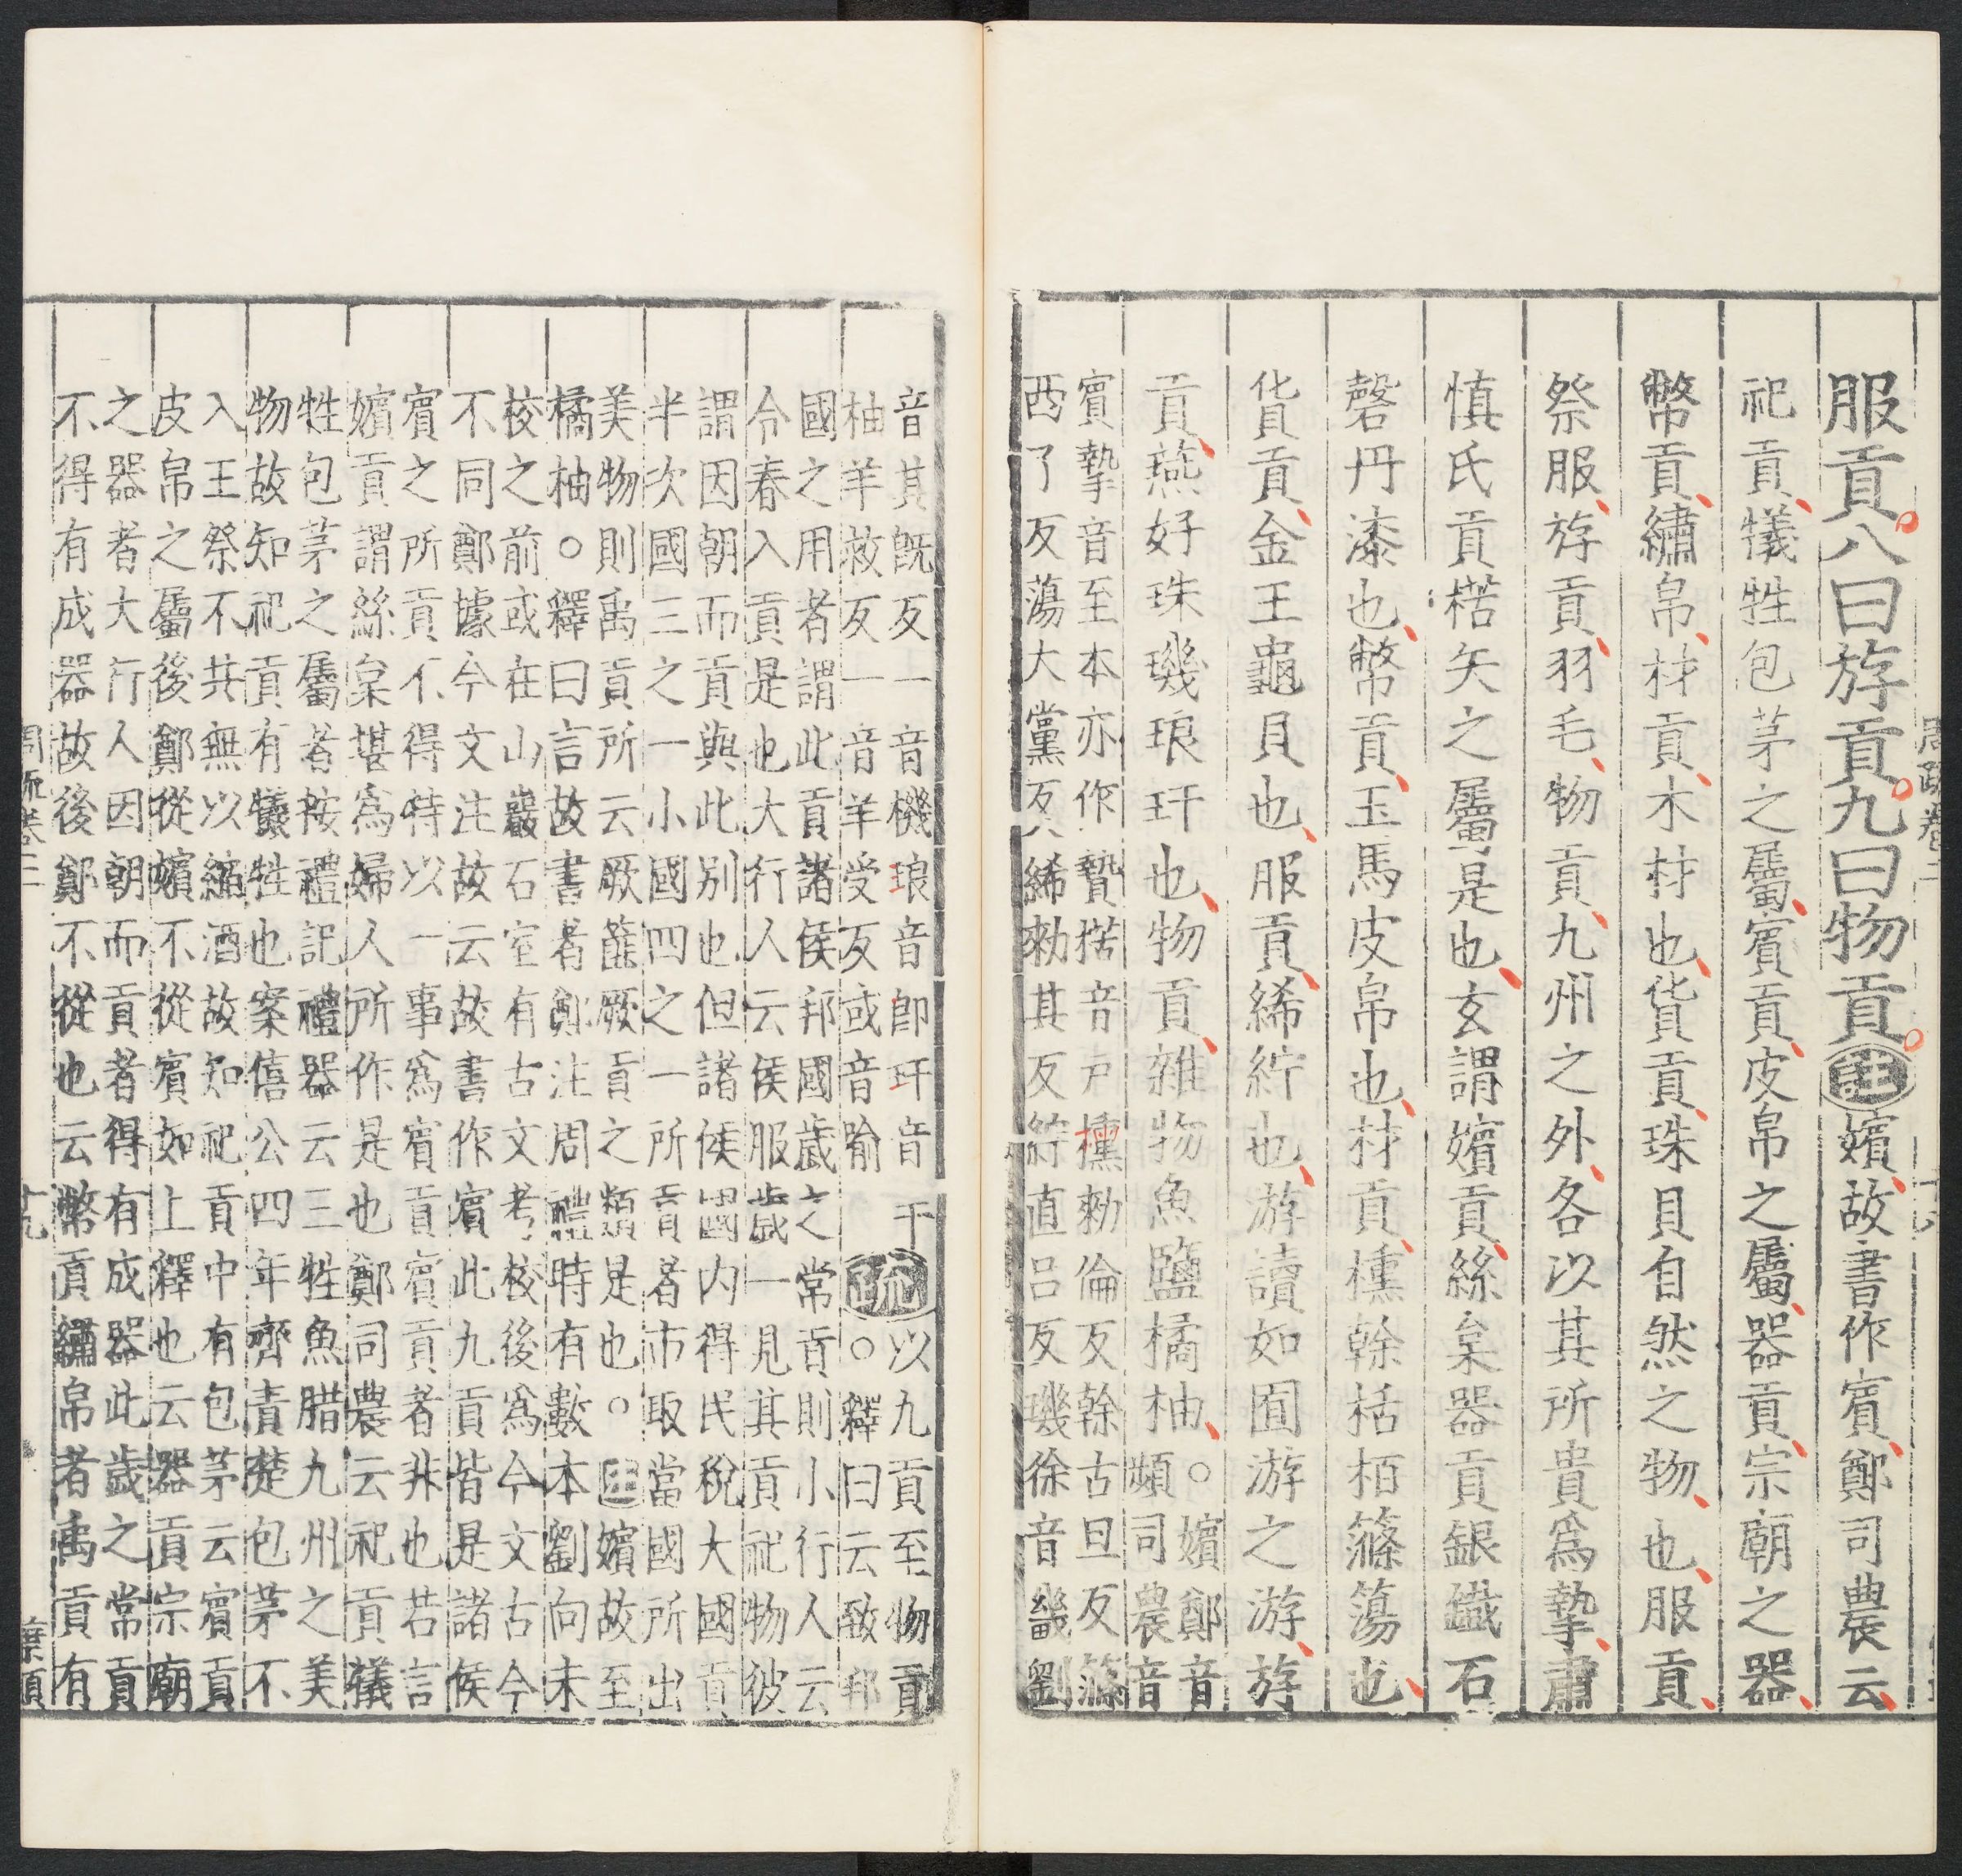 服貢八曰斿貢九曰物貢注嬪故書作賓鄭司農云
祀貢犧牲包茅之屬賓貢皮帛之屬器貢宗廟之器
幣貢繡帛材貢木材也貨貢珠貝自然之物也服貢
祭服斿貢羽毛物貢九州之外各以其所貴爲摯肅
慎氏貢楛矢之屬是也玄謂嬪貢絲枲器貢銀鐵石
磬丹漆也幣貢玉馬皮帛也材貢櫄幹栝栢篠簜也
貨貢金玉龜貝也服貢絺紵也斿讀如囿游之游斿
貢燕好珠璣琅玕也物貢雜物魚鹽橘柚○嬪鄭音
頻司農音
賓摯音至本亦作贄楛音戸櫄勑倫反幹古旦反篠
西了反蕩大黨反絺勑其反紵直呂反璣徐音畿劉
音其旣反一音機琅音郎玕音干
柚羊救反一音羊受反或音喻疏以九貢至物貢
○釋曰云致邦
國之用者謂此貢諸侯邦國歲之常貢則小行人云
令春入貢是也大行人云侯服歲一見其貢祀物彼
謂因朝而貢與此别也但諸侯國内得民稅大國貢
半次國三之一小國四之一所貢者市取當國所出
美物則禹貢所云厥篚厥貢之類是也○注嬪故至
橘柚○釋曰言故書者鄭注周禮時有數本劉向未
校之前或在山巖石室有古文考校後爲今文古今
不同鄭據今文注故云故書作賓此九貢皆是諸侯
賓之所貢不得特以一事爲賓貢賓貢者非也若言
嬪貢謂絲枲堪爲婦人所作是也鄭司農云祀貢犧
牲包茅之屬者按禮記禮器云三牲魚腊九州之美
物故知祀貢有犧牲也案僖公四年齊責楚包茅不
入王祭不共無以縮酒故知祀貢中有包茅云賓貢
皮帛之屬後鄭從嬪不從賓如上釋也云器貢宗廟
之器者大行人因朝而貢者得有成器此歲之常貢
不得有成器故後鄭不從也云幣貢繡帛者禹貢有